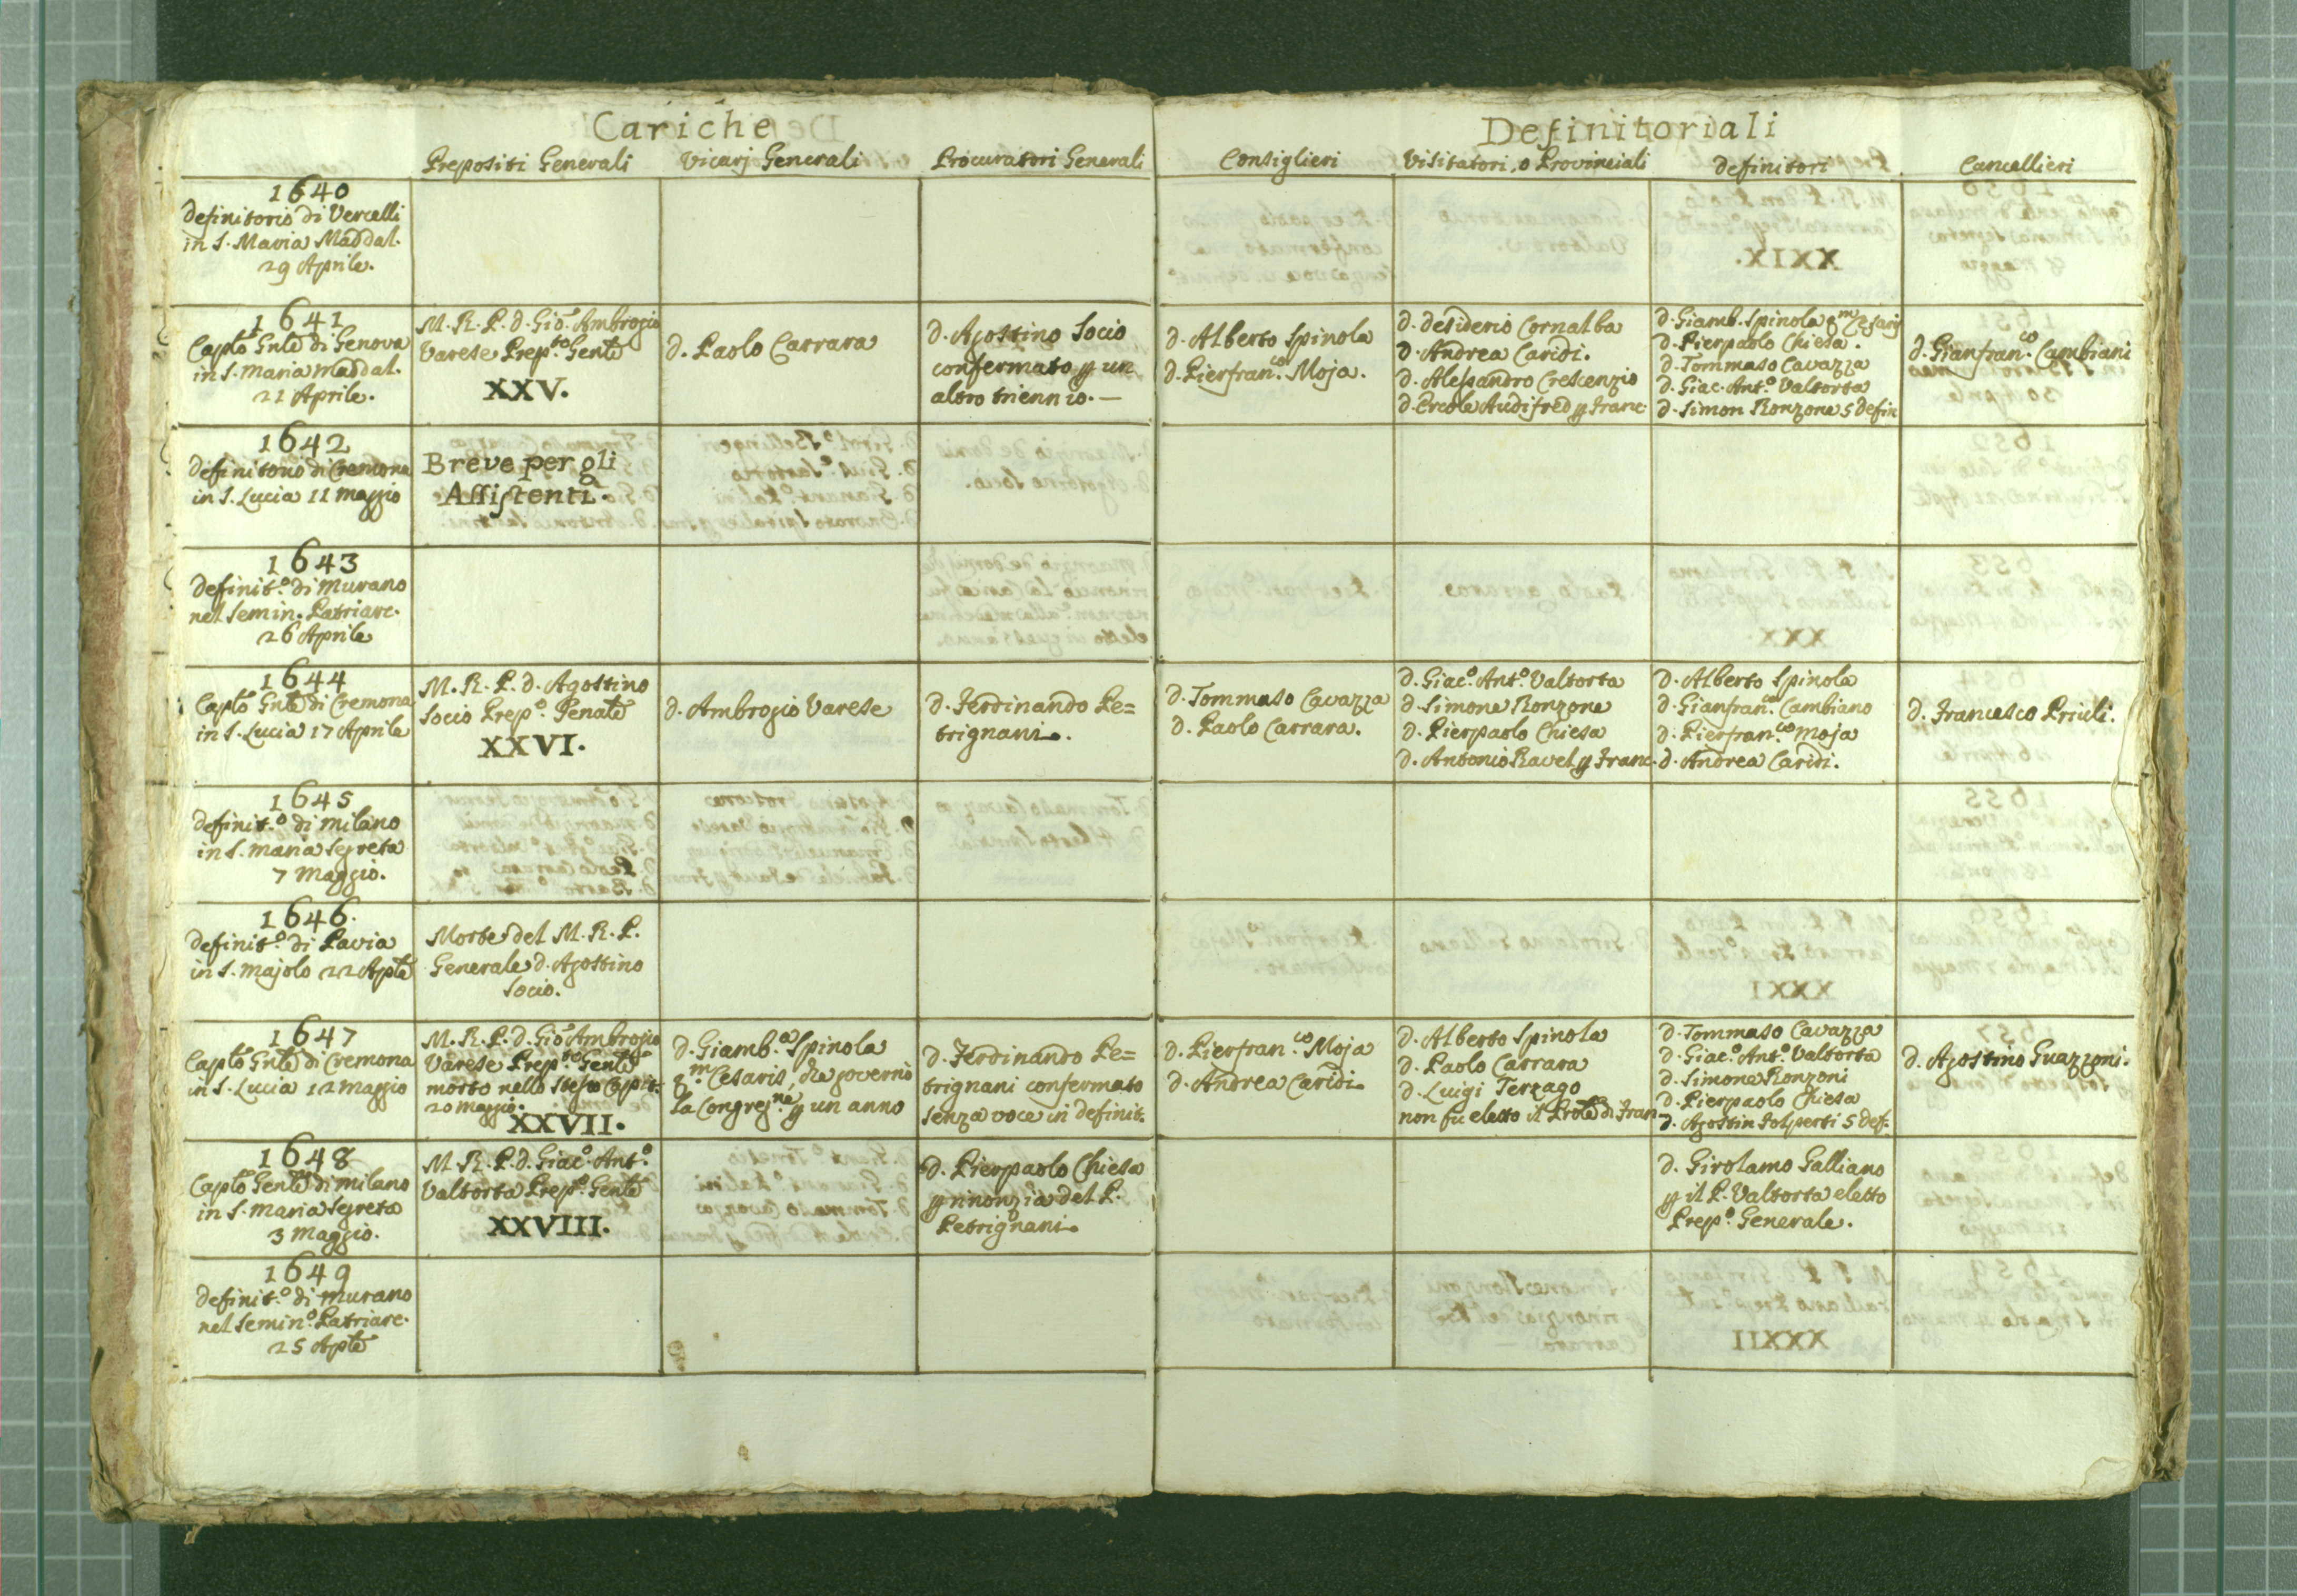 Cariche
Definitoriali
Prepositi Generali
Vicarj Generali
Procuratori Generali
Consiglieri
Visitatori, o Provinciali
Definitori
Cancellieri
1640
Definitorio di Vercelli
in S. Maria Maddal.
29 Aprile.
1641
Caplo Gnle di Genova
in S. Maria Maddal.
21 Aprile.
M. R. P. d. Gio. Ambrogio
Varese Prep.to Genle
XXV.
d. Paolo Carrara
d. Agostino Socio
confermato p un
altro triennio. —
d. Alberto Spinola
d. Pierfran.co Moja.
d. Desiderio Cornalba
d. Andrea Caridi.
d. Alessandro Crescenzio
d. Ercole Audifred p Franc
d. Giamb. Spinola qm Cesaris
d. Pierpaolo Chiesa.
d. Tommaso Cavazza
d. Giac. Ant.o Valtorta
d. Simon Ronzone 5 defin
d. Gianfran.co Cambiani
1642
Definitorio di Cremona
in S. Lucia 11 Maggio
Breve per gli
Assistenti.
1643
Definit.o di Murano
nel Semin. Patriarc.
26 Aprile
1644
Caplo Gnle di Cremona
in S. Lucia 17 Aprile
M. R. P. d. Agostino
Socio Prep.o Genale
XXVI.
d. Ambrogio Varese
d. Ferdinando Pe=
trignani.
d. Tommaso Cavazza
d. Paolo Carrara.
d. Giac.o Ant.o Valtorta
d. Simone Ronzone
d. Pierpaolo Chiesa
d. Antonio Ravel p Franc.
d. Alberto Spinola
d. Gianfran.co Cambiano
d. Pierfran.co Moja
d. Andrea Caridi.
d. Francesco Priuli.
1645
Definit.o di Milano
in S. Maria Segreta
7 Maggio.
1646.
Definit.o di Pavia
in S. Majolo 22 Aple
Morte del M. R. P.
Generale d. Agostino
Socio.
1647
Caplo Gnle di Cremona
in S. Lucia 12 Maggio
M. R. P. d. Gio Ambrogio
Varese Prep.to Genle
morto nello stesso Capit.
20 Maggio.
XXVII.
d. Giamb.a Spinola
qm Cesaris, che governò
la Congreg.ne p un anno
d. Ferdinando Pe=
trignani confermato
senza voce in definit.
d. Pierfran.co Moja
d. Andrea Caridi.
d. Alberto Spinola
d. Paolo Carrara
d. Luigi Terzago
non fu eletto il Prole di Fran
d. Tommaso Cavazza
d. Giac.o Ant.o Valtorta
d. Simone Ronzoni
d. Pierpaolo Chiesa
d. Agostin Solperti 5 def.
d. Agostino Guazzoni.
1648
Caplo Genle di Milano
in S. Maria Segreta
3 Maggio.
M. R. P. d. Giac.o Ant.o
Valtorta Prep.o Genle
XXVIII.
d. Pierpaolo Chiesa
p rinonzia del P.
Petrignani.
d. Girolamo Galliano
p il P. Valtorta eletto
Prep.o Generale.
1649
Definit.o di Murano
nel Semin.o Patriarc.
25 Aple